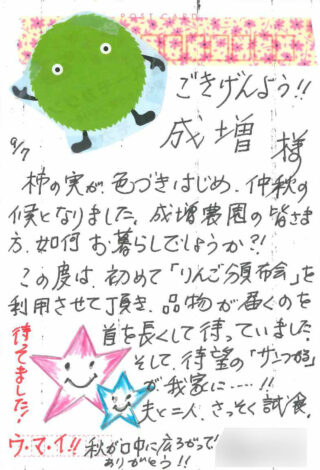 POST CARD
ごきげんよう!!
9/7
成増 様
柿の実が、色づきはじめ、仲秋の
候となりました。成増農園の皆さま
方、如何お暮らしでしょうか?!
この度は、初めて「りんご頒布会」を
利用させて頂き、品物が届くのを
首を長くして待っていました。
そして、待望の「サンつがる」
が我家に……!!
夫と二人、さっそく試食。
待ってました!
ウ・マ・イ!!
秋が口中に広ろがって!
ありがとう!!